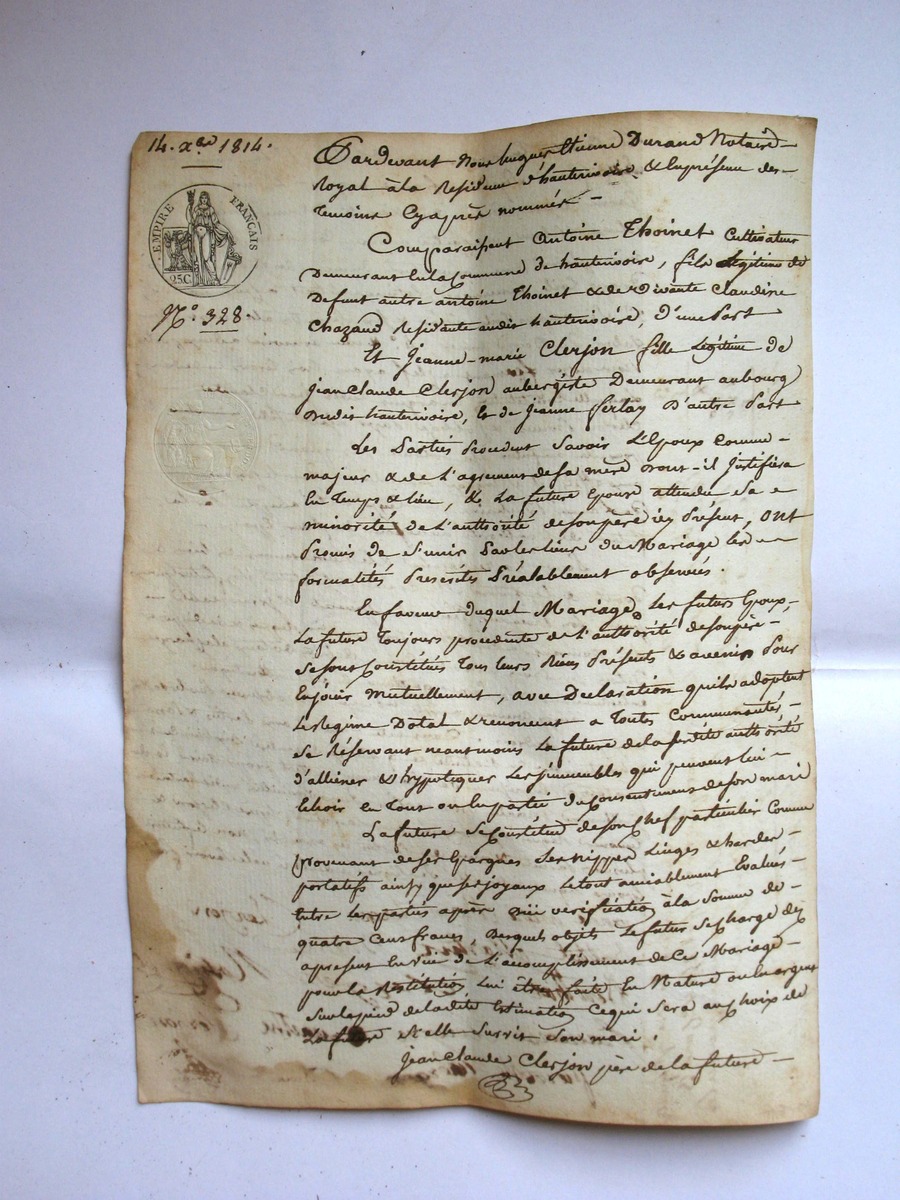 14. Xbre 1814.
EMPIRE FRANÇAIS
25.C
N° 328.
Pardevant Nous hugues Etienne Durand Notaire
Royal à la Residence d'hauterivoire, & En présence des
temoins Cy après nommés
Comparaissent Antoine Thoinet Cultivateur
Demeurant En la Commune de hauterivoire, fils légitime de
Defunt autre antoine Thoinet & de vivante Claudine
Chazaud Residante audit hauterivoire, D'une Part
Et Jeanne-marie Clerjon fille Légitime de
Jean Claude Clerjon aubergiste Demeurant au bourg
Dudit hauterivoire, Et de Jeanne ferlay D'autre Part
Les Parties Procedent Savoir L'Epoux Comme
majeur & de L'agrement de Sa mère Dont-il Justifiera
En Temps & lieu, & La future Epouse attendu Sa
minorité de L'authorité de Son père icy Présent, ont
Promis de S'unir Par les liens du Mariage les
formalités Prescrites Préalablement observées.
En faveur duquel Mariage Les futurs Epoux,
La future Toujours procedente de L'authorité de Son père
Se Sont Constitués Tous leurs Biens Présents & avenir Pour
En jouir Mutuellement, avec Déclaration qu'ils adoptent
Le Regime Dotal & renoncent a Toutes Communautés
Se Réservant neantmoins La future de la Susdite authorité
d'alliéner & hypotiquer Les jmmeubles qui peuvent lui
Echoir En Tout ou En partie du Consentement de Son mari
La future Se Constitue de Son Chef particulier Comme
provenant de Ses Epargnes Ses nippes Linges & hardes
portatifs ainsy que Ses joyaux Le tout amiablement Evalués
Entre Les parties après verification à La Somme de
quatre Cens francs, Desquels objets Le futur Se Charge dez
apresent En vue de L'accomplissement de Ce Mariage
pour la Restitution Lui être faite En Nature ou En argent
Sur le pied de la dite Estimation Ce qui Sera au Choix de
La future Si elle Survit Son mari.
Jean Claude Clerjon père de la future